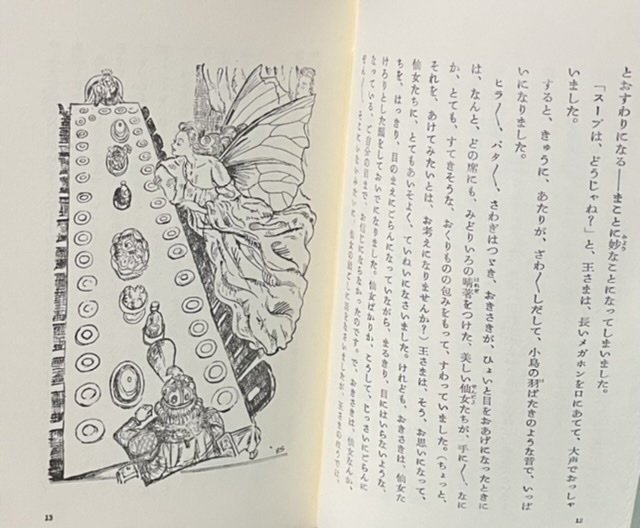 とおすわりになる――まことに妙なことになってしまいました。
「スープは、どうじゃね？」と、王さまは、長いメガホンを口にあてて、大声でおっしゃ
いました。
すると、きゅうに、あたりが、ざわ〳〵しだして、小鳥の羽ばたきのような音で、いっぱ
いになりました。
ヒラ〳〵、パタ〳〵、さわぎはつづき、おきさきが、ひょいと目をおあげになったときに
は、なんと、どの席にも、みどりいろの晴著をつけた、美しい仙女たちが、手に〳〵、なに
か、とても、すてきそうな、おくりものの包みをもって、すわっていました。（ちょっと、
それを、あけてみたいとは、お考えになりませんか？）王さまは、そう、お思いになって、
仙女たちに、とてもあいそよく、ていねいになさいました。けれども、おきさきは、仙女た
ちを、はっきり、目のまえにごらんになっていながら、まるきり、目にはいらないような、
けろりとした顔をしておいでになりました。仙女ばかりか、こうして、じっさいにごらんに
なっている、ご自分の目まで、お信じにならなかったのです。で、おきさきは、仙女なんか、
12
13